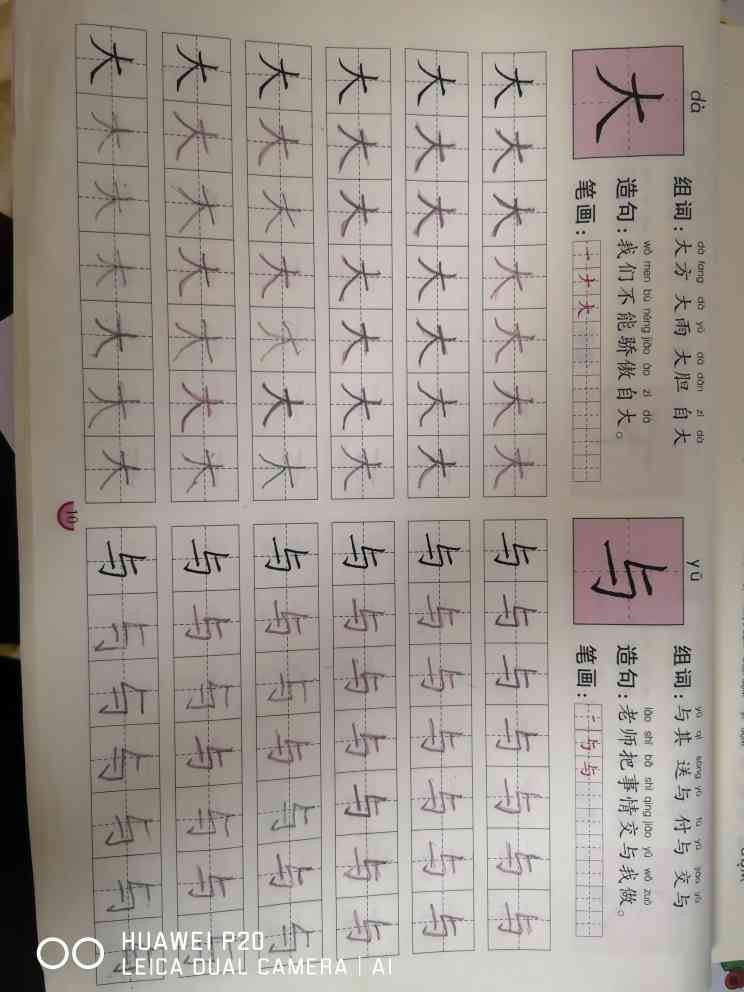 dà
大
dà fang dà yǔ dà dǎn zì dà
组词：大方 大雨 大胆 自大
wǒ men bù néng jiāo ào zì dà
造句：我们不能骄傲自大。
笔画：一ナ大
大大大大大大大
大大大大大大大
大大大大大大大
大大大大大大大
大大大大大大大
大大大大大大大
yǔ
与
yǔ qí sòng yǔ fù yǔ jiāo yǔ
组词：与其 送与 付与 交与
lǎo shī bǎ shì qing jiāo yǔ wǒ zuò
造句：老师把事情交与我做。
笔画：与与
与与与与与与与
与与与与与与与
与与与与与与与
与与与与与与与
与与与与与与与
与与与与与与与
10
HUAWEI P20
LEICA DUAL CAMERA | AI